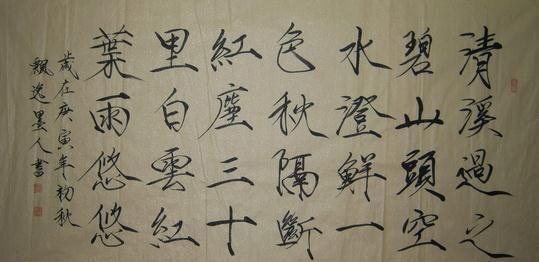 清溪過之
碧山頭空
水澄鮮一
色秋隔斷
紅塵三十
里白雲紅
葉雨悠悠
歲在庚寅年初秋
飄逸墨人書